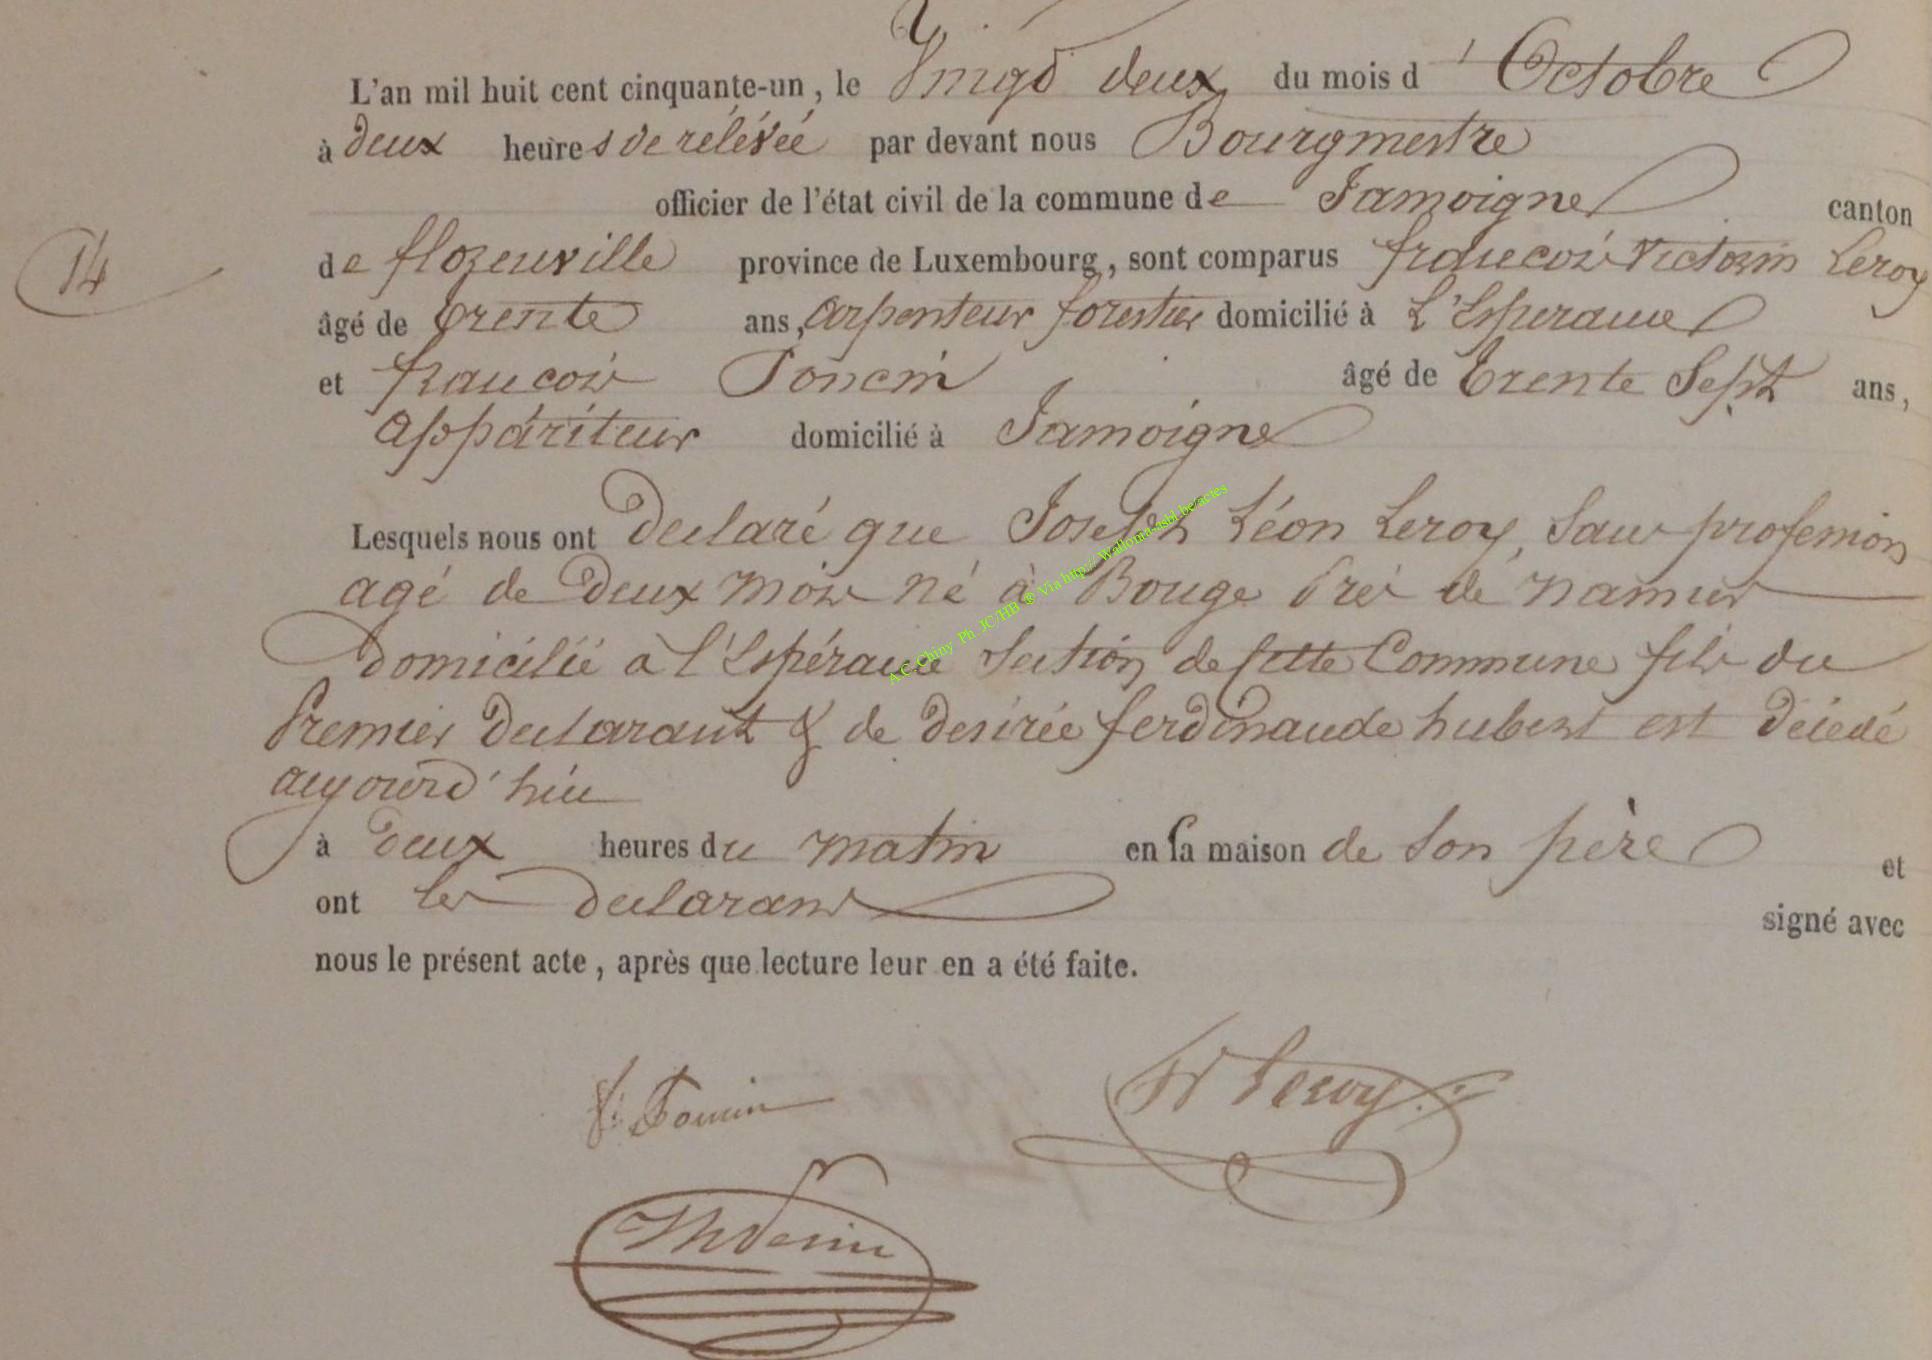 L'an mil huit cent cinquante-un, le Vingt deux du mois d'Octobre
à deux heures de rélévée par devant nous Bourgmestre
officier de l'état civil de la commune de Jamoigne canton
14
de florenville province de Luxembourg, sont comparus francois Victorin Leroy
âgé de trente ans, arpenteur forestier domicilié à L'Esperance
et francois Poncin âgé de trente Sept ans,
appariteur domicilié à Jamoigne
Lesquels nous ont déclaré que Joseph Léon Leroy, Sans profession
agé de deux mois né à Bouge Près de namur
domicilié à l'Espérance Section de cette Commune fils du
Premier declarant & de desirée ferdinande hubert est décédé
aujourd'hui
à deux heures du matin en la maison de son père et
ont les declarans signé avec
nous le présent acte, après que lecture leur en a été faite.
f. Poncin
Leroy
A.C. Chiny Ph. JC/HB ® Via http://Wallonia-asbl.be/actes